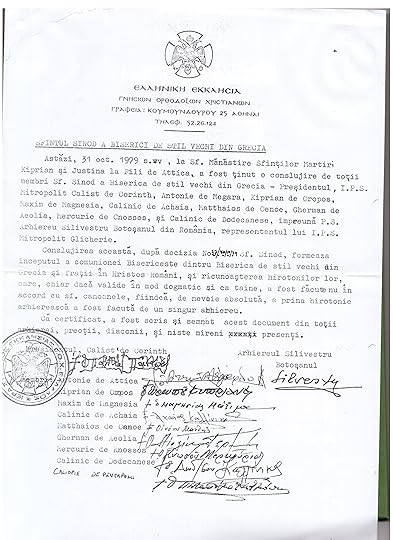 ΕΛΛΗΝΙΚΗ ΕΚΚΛΗΣΙΑ
ΓΝΗΣΙΩΝ ΟΡΘΟΔΟΞΩΝ ΧΡΙΣΤΙΑΝΩΝ
ΓΡΑΦΕΙΑ: ΚΟΥΜΟΥΝΔΟΥΡΟΥ 25 ΑΘΗΝΑΙ
ΤΗΛΕΦ. 52.26.124
SFINTUL SINOD A BISERICI DE STIL VECHI DIN GRECIA
Astăzi, 31 oct. 1979 s.vv , la Sf. Mănăstire Sfinților Martiri
Kiprian și Justina la Fili de Attica, a fost ținut o consluire de toții
membri Sf. Sinod a Biserica de stil vechi din Grecia - Președentul, I.P.S.
Mitropolit Calist de Corinth, Antonie de Megara, Kiprian de Oropos,
Maxim de Magnesia, Calinic de Achaia, Matthaios de Oenoe, Gherman de
Aeolia, hercuric de Cnossos, și Calinic de Dodecanese, împreună P.S.
Arhiereu Silivestru Botoșanul din România, represententul lui I.P.S.
Mitropolit Glicherie.
Consluirea aceastâ, după decizia No Sf. Sinod, formeaza
începutul a comuniunei Bisericeste dintru Biserica de stil vechi din
Grecia și frații în Hristos Români, și ricunoașterea hirotoniilor lor,
care, chiar dacă valide în mod dogmatic și ca taine, a fost făcute nu în
accord cu sf. canoanele, fiindcă, de nevoie absolută, a prima hirotonie
arhierească a fost facută de un singur arhiereu.
Că certificat, a fost scris și semnat acest document din toții
arhierei, preoții, diaconii, și niste mireni prezenti.
Calist de Corinth Arhiereul Silivestru
Botoșanul
Antonie de Attica Silvestru
Kiprian de Oropos
Maxim de Magnesia
Calinic de Achaia
Matthaios de Oenoe
Gherman de Aeolia
Mercurie de Knossos
Calinic de Dodecanese
CALIOPIE DE PENTAPOLI